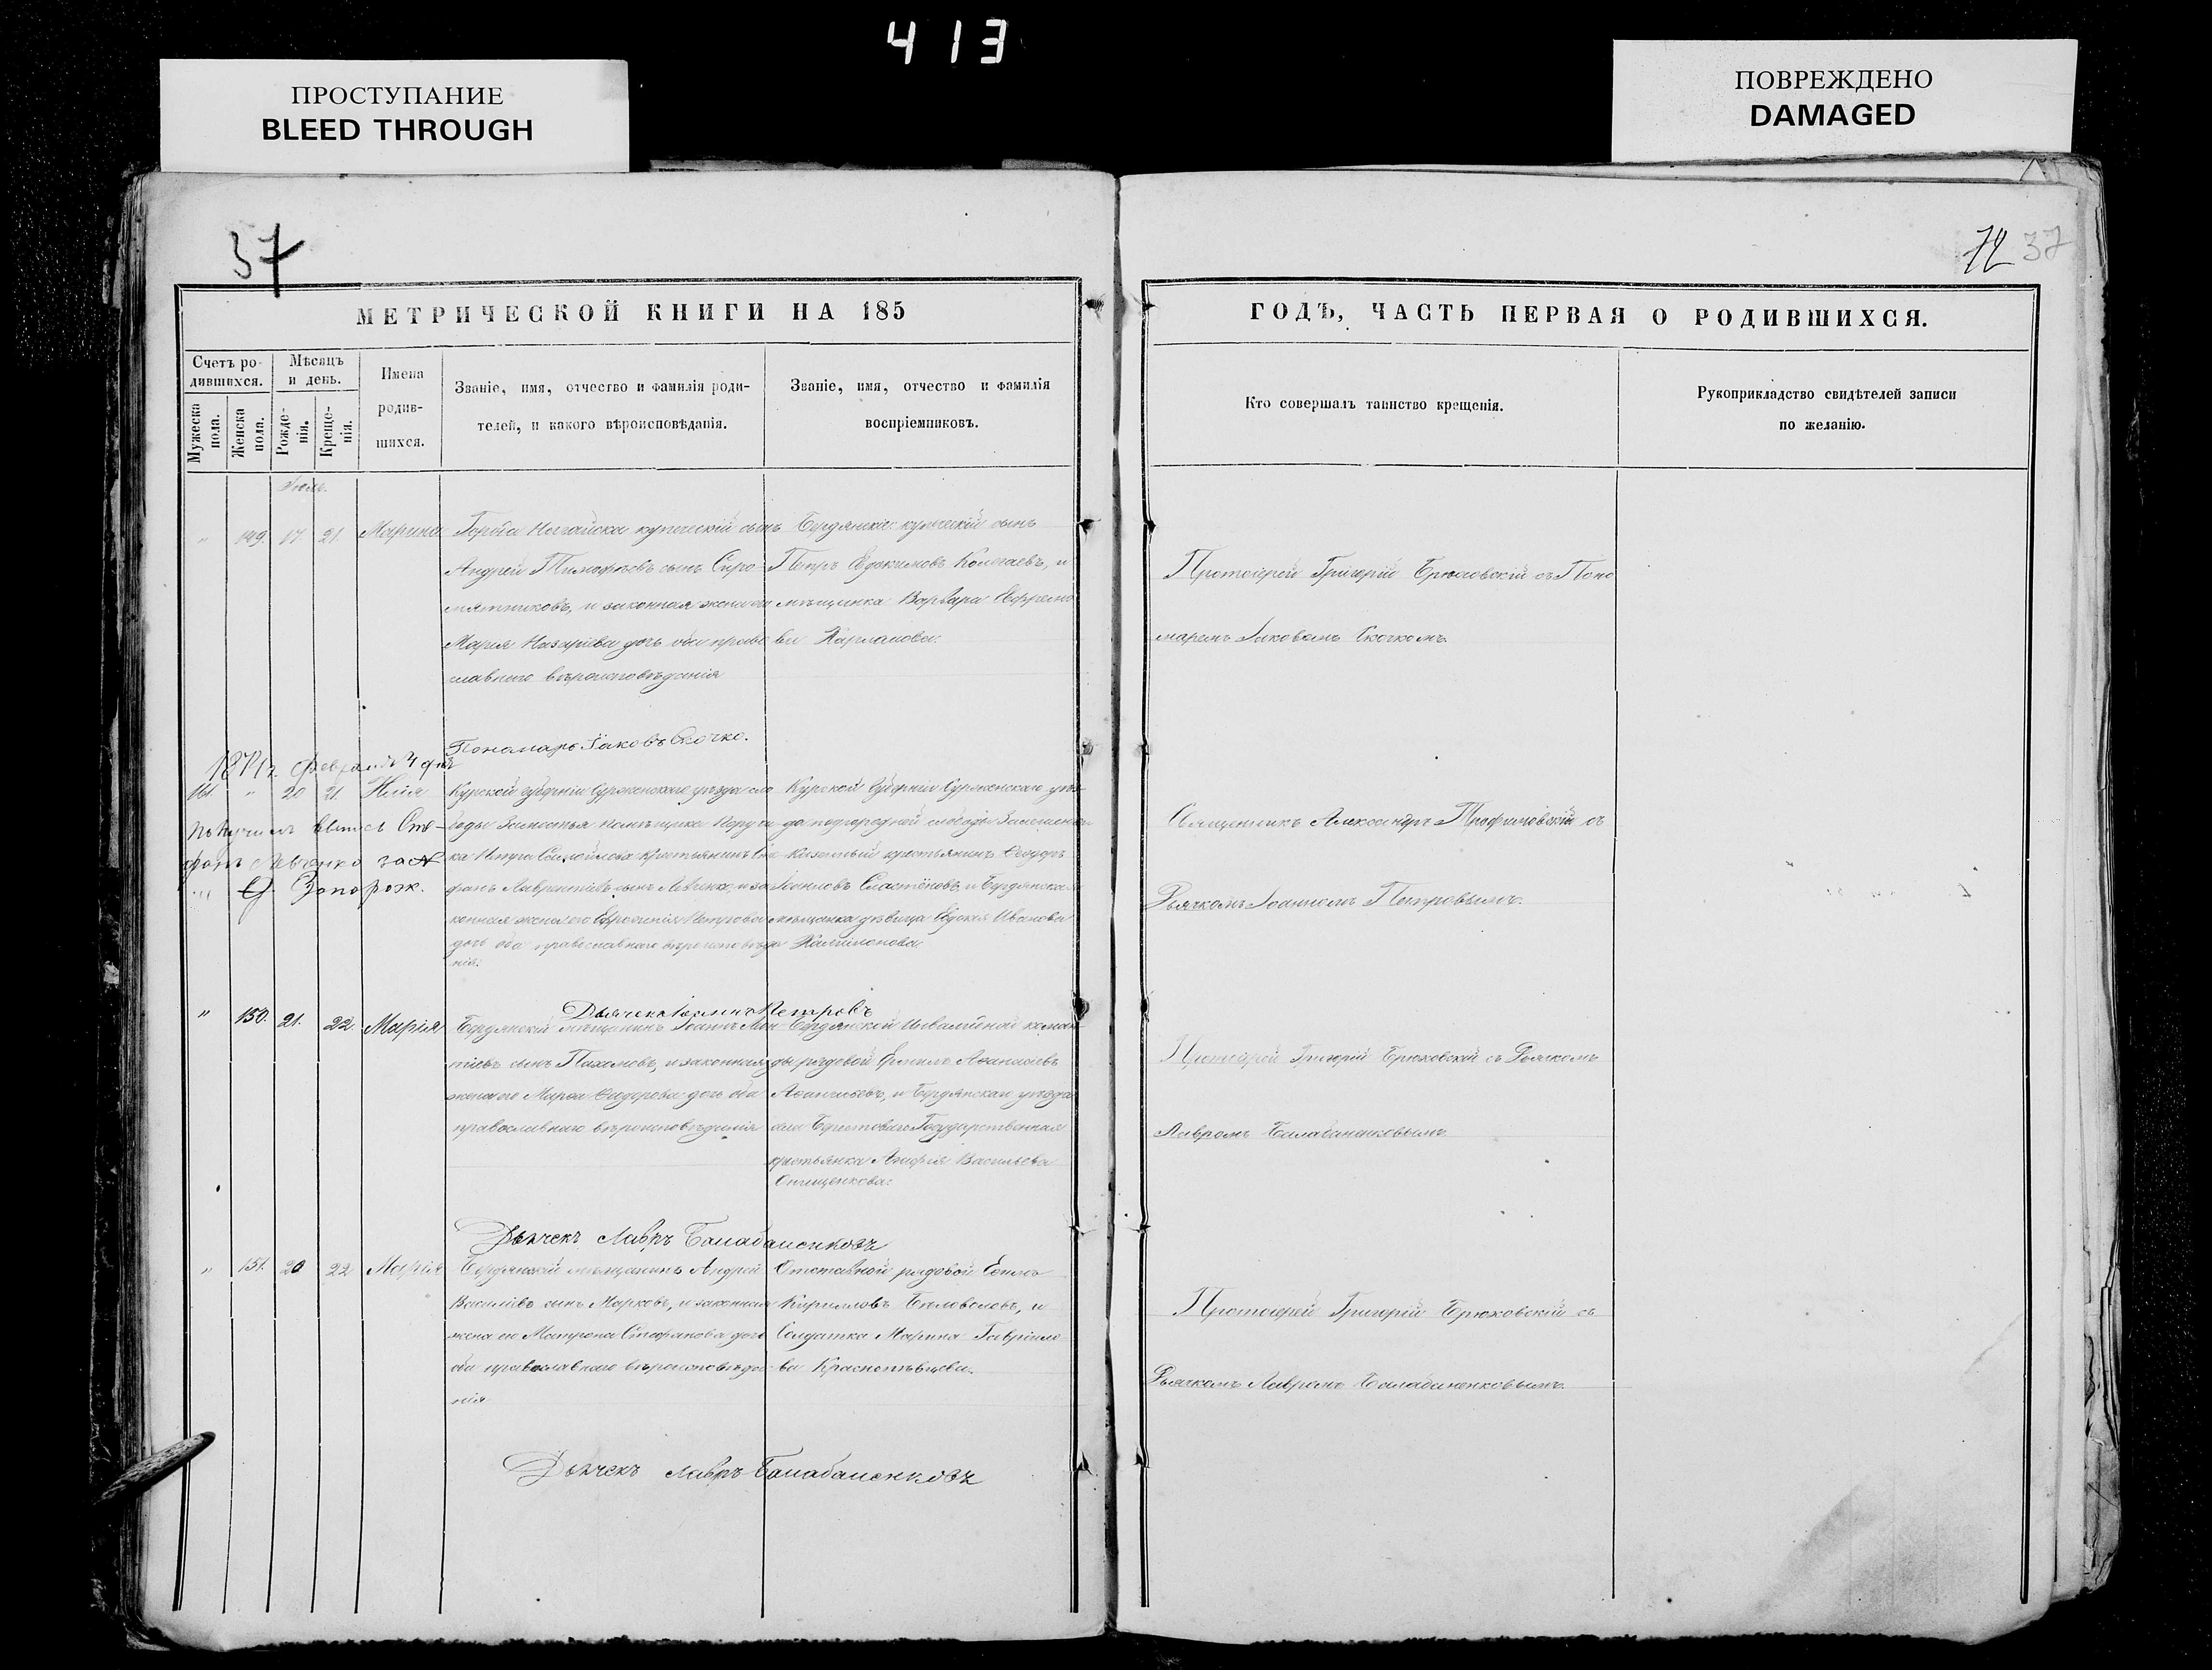 413
ПРОСТУПАНИЕ
BLEED THROUGH
ПОВРЕЖДЕНО
DAMAGED
37
72 37
МЕТРИЧЕСКОЙ КНИГИ НА 185
ГОДЪ, ЧАСТЬ ПЕРВАЯ О РОДИВШИХСЯ.
Счетъ ро-
дившихся.
Мужеска
пола.
Женска
пола.
Мѣсяцъ
и день.
Рожде-
нія.
Креще-
нія.
Имена
родив-
шихся.
Званіе, имя, отчество и фамилія роди-
телей, и какого вѣроисповѣданія.
Званіе, имя, отчество и фамилія
воспріемниковъ.
Кто совершалъ таинство крещенія.
Рукоприкладство свидѣтелей записи
по желанію.
Іюль.
" 149. 17 21. Марина
Города Ногайска купеческій сынъ
Андрей Тимофѣевъ сынъ Сиро-
мятниковъ, и законная жена его
Марія Назаріева дочь оба право-
славнаго вѣроисповѣданія
Бердянскій купеческій сынъ
Петръ Евдокимовъ Колотаевъ, и
мѣщанка Варвара Ефремо-
ва
Протоіерей Григорій Брюховскій съ Поно
маремъ Іаковомъ Скочкомъ.
Пономарь Іаковъ Скочко.
1871 г. Февраля 4 дня
Получилъ Сте-
фанъ Левченко за №
Запорож.
161. " 20 21. Илія
Курской губерніи Суджанскаго уѣзда сло
боды Замостья помѣщика
ка Петра Самойлова крестьянинъ Сте
фанъ Лаврентіевъ сынъ Левченко, и за
конная жена его Евфросинія Петрова
дочь оба православнаго вѣроисповѣда
нія.
Курской Губерніи Суджанскаго уѣз
да подгородней слободы
казенный крестьянинъ Ѳеодоръ
и Бердянская
мѣщанка дѣвица Евдокія Иванова
Священникъ Александръ Трофимовскій съ
Дьячкомъ Іоанномъ Петровымъ.
Дьячекъ Іоаннъ Петровъ
" 150. 21. 22. Марія
Бердянскій мѣщанинъ Іоаннъ
тіевъ сынъ Пахомовъ, и законная
жена его Марѳа Сидорова дочь оба
православнаго вѣроисповѣданія
Бердянской Инвалидной коман
ды рядовой Ермилъ Аѳанасіевъ
и Бердянскаго уѣзда
Государственная
крестьянка Агафія Васильева
Онищенкова:
Протоіерей Григорій Брюховскій съ Дьячкомъ
Лавромъ Балабаненковымъ
Дьячекъ Лавръ Балабаненковъ
" 151. 20 22 Марія
Бердянскій мѣщанинъ Андрей
Василіевъ сынъ Марковъ, и законная
жена его Матрона Стефанова дочь
оба православнаго вѣроисповѣда-
нія
Отставной рядовой
Кирилловъ Бѣловоловъ, и
Солдатка Марина Гавріило-
ва
Протоіерей Григорій Брюховскій съ
Дьячкомъ Лавромъ Балабаненковымъ.
Дьячекъ Лавръ Балабаненковъ